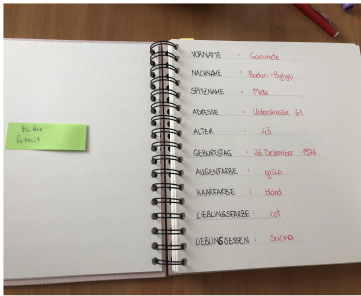 Mutter
Portrait
VORNAME : Ganimete
NACHNAME : Buduri-Bylygji
SPITZNAME - Mete
ADRESSE : Usterstrasse 61
ALTER - 43
GEBURTSTAG : 26 Dezember 1976
AUGENFARBE : grün
HAARFARBE : blond
LIEBLINGSFARBE : rot
LIEBLINGSESSEN : Sarma